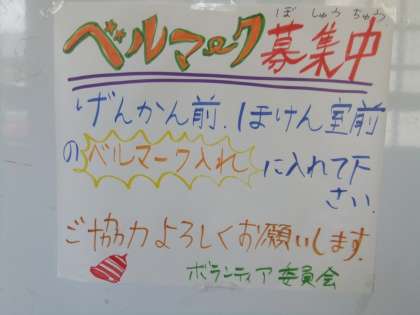 ぼしゅうちゅう
ベルマーク募集中
げんかん前.ほけん室前
のベルマーク入れに入れて下
さい.
ご協力よろしくお願いします.
ボランティア委員会